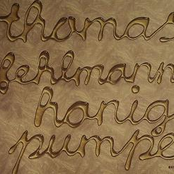 thomas
fehlmann
honig
pumpe